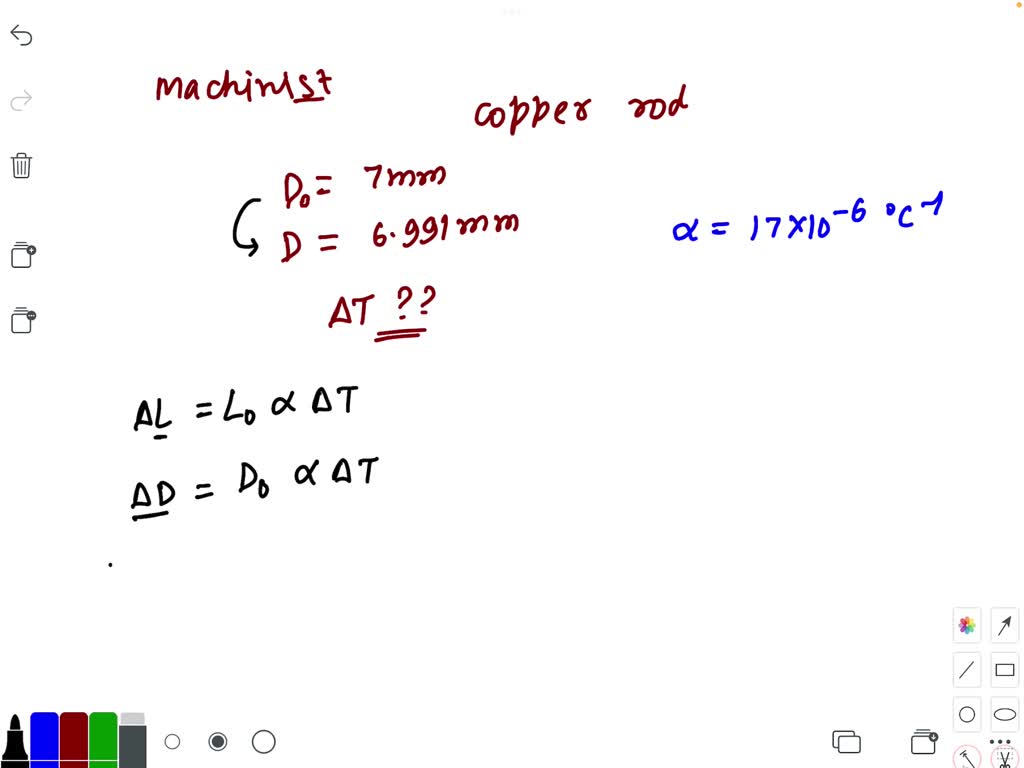 machinist
copper rod
D₀ = 7mm
D = 6.991mm
α = 17×10⁻⁶ °C⁻¹
ΔT ??
ΔL = L₀ α ΔT
ΔD = D₀ α ΔT